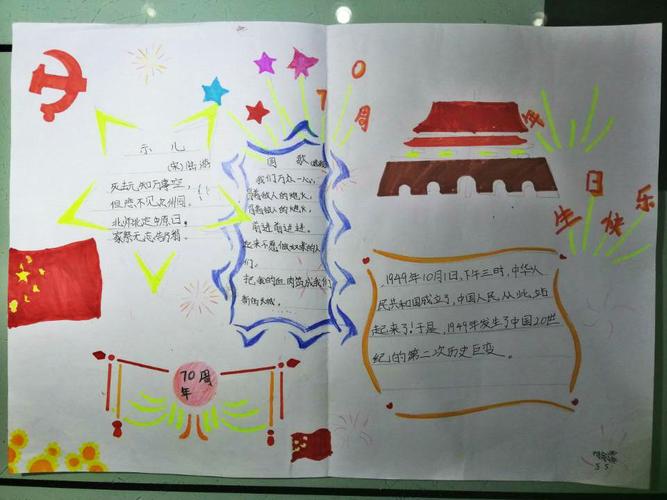 示儿
(宋)陆游
死去元知万事空，
但悲不见九州同。
北师北定中原日，
家祭无忘告乃翁。
国歌
我们万众一心，
冒着敌人的炮火，
冒着敌人的炮火，
前进前进进。
起来不愿做奴隶的人
们。
把我的血肉筑成我们
新的长城。
70周年
生日快乐
1949年10月1日，下午三时，中华人
民共和国成立了，中国人民从此站
起来了！于是，1949年发生了中国20世
纪的第二次历史巨变。
70周
年
55